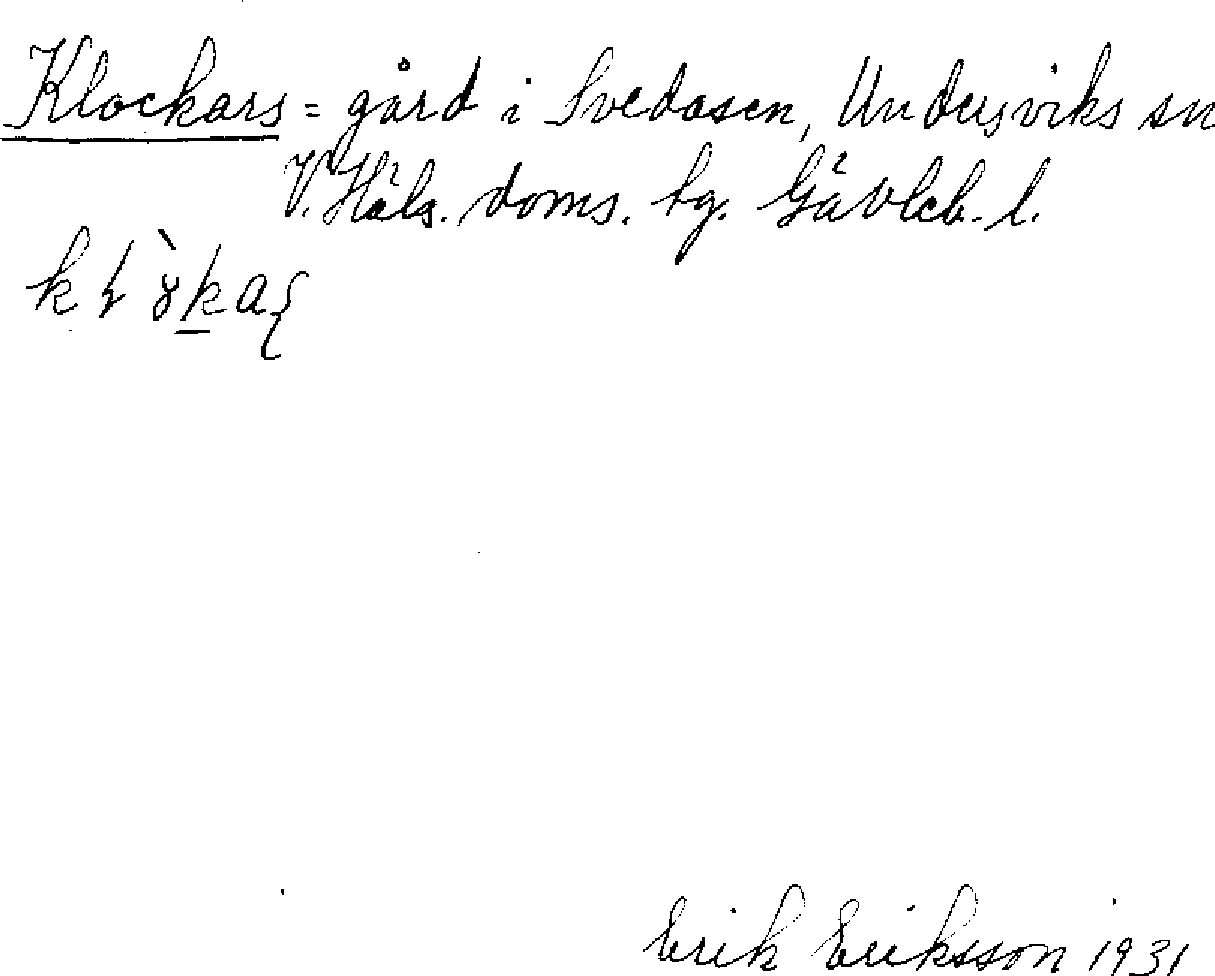 Klockars = gård i Svedåsen, Undersviks sn
V. Häls. doms. tg. Gävleb. l.
Erik Eriksson 1931